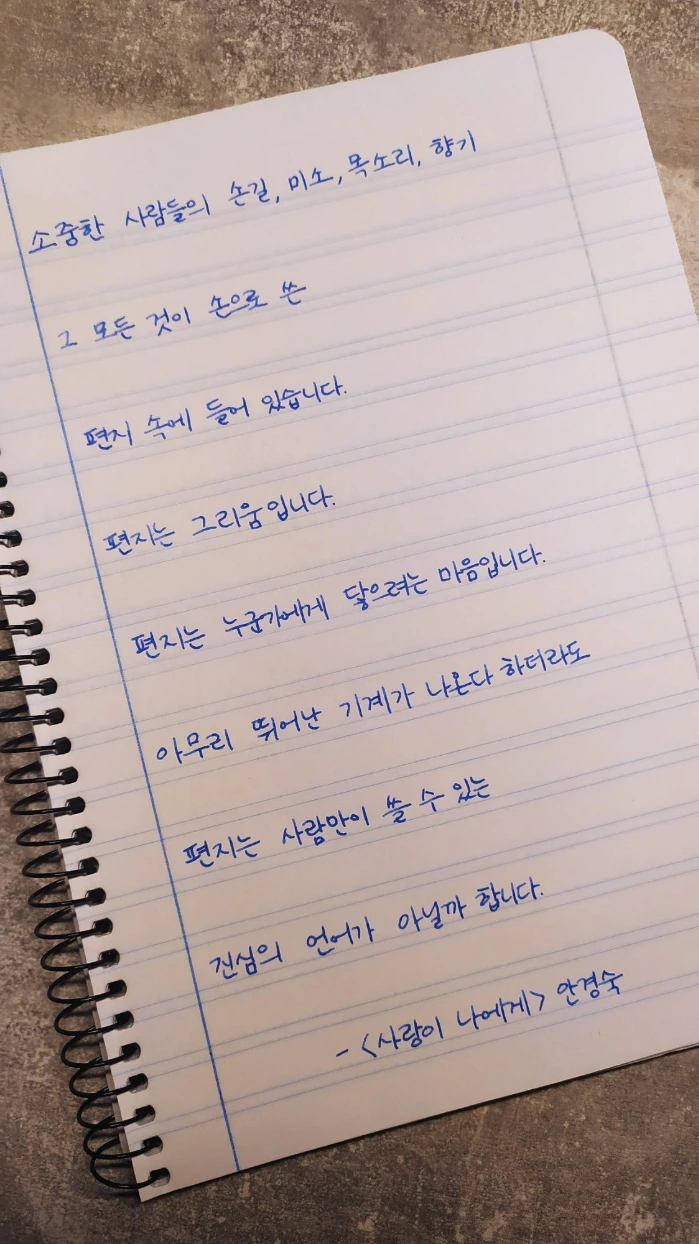 소중한 사람들의 손길, 미소, 목소리, 향기
그 모든 것이 손으로 쓴
편지 속에 들어 있습니다.
편지는 그리움입니다.
편지는 누군가에게 닿으려는 마음입니다.
아무리 뛰어난 기계가 나온다 하더라도
편지는 사람만이 쓸 수 있는
진심의 언어가 아닐까 합니다.
- <사랑이 나에게> 안경숙